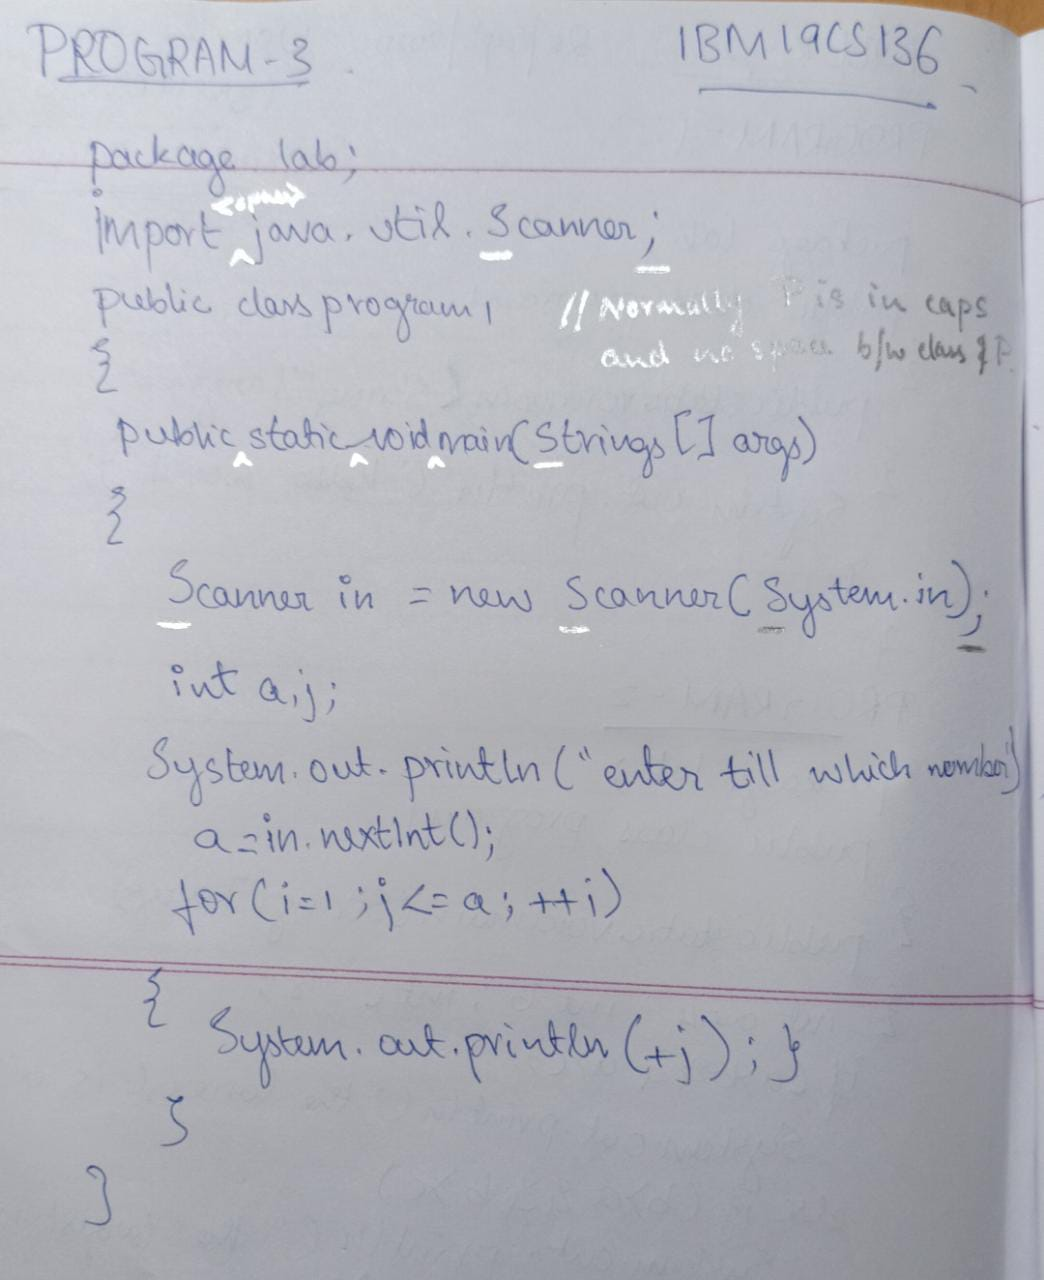 PROGRAM-3
1BM19CS136
package lab;
<space>
import java.util.Scanner;
public class program1 // Normally P is in caps
and no space b/w class & P.
{
public static void main(Strings[] args)
{
Scanner in = new Scanner(System.in);
int a,j;
System.out.println("enter till which number")
a=in.nextInt();
for(i=1;j<=a;++i)
{
System.out.println(+j);}
}
}